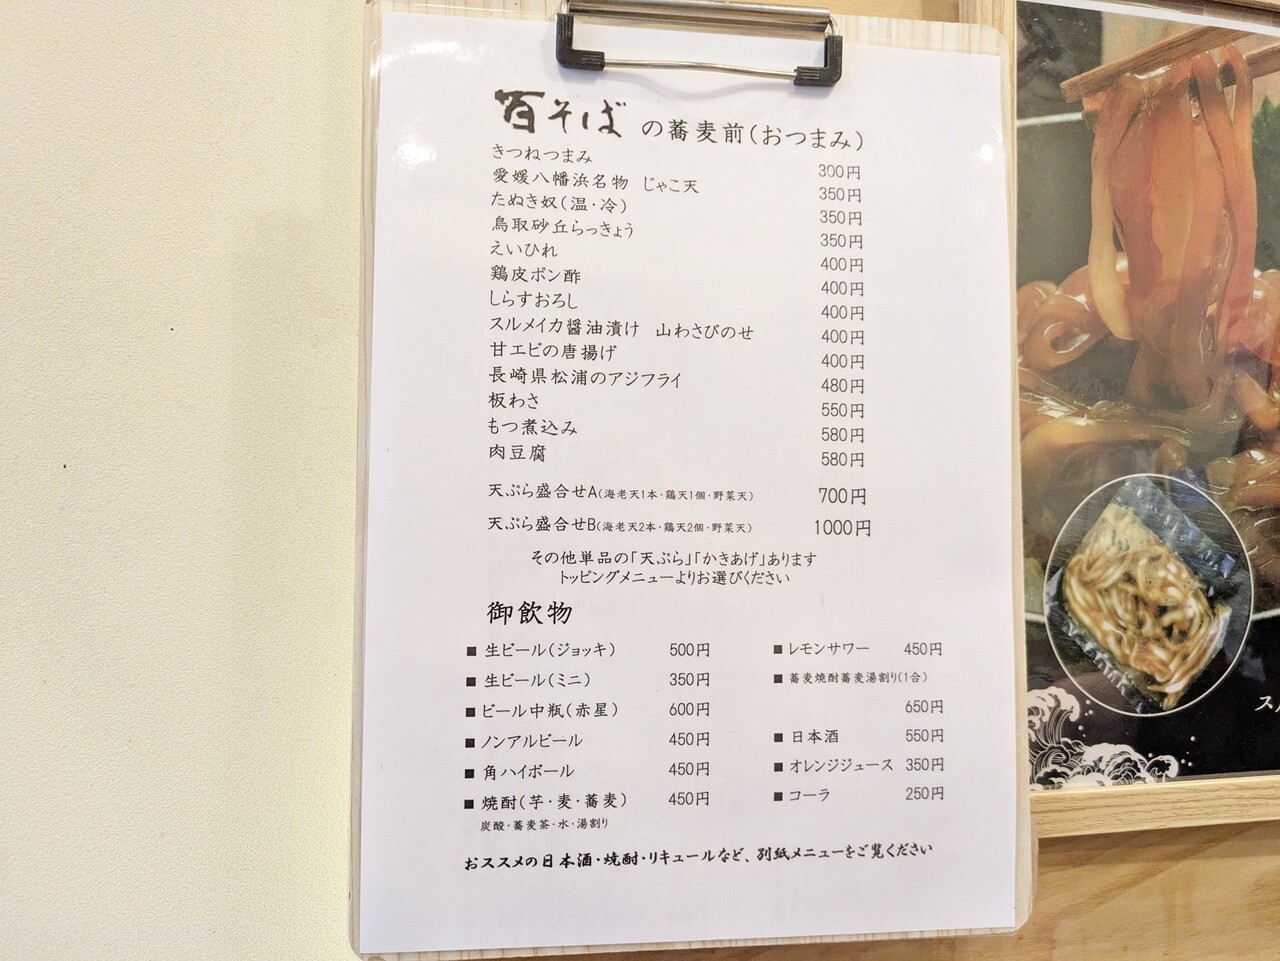 百そば の蕎麦前(おつまみ)
きつねつまみ 300円
愛媛八幡浜名物 じゃこ天 350円
たぬき奴(温・冷) 350円
鳥取砂丘らっきょう 350円
えいひれ 400円
鶏皮ポン酢 400円
しらすおろし 400円
スルメイカ醤油漬け 山わさびのせ 400円
甘エビの唐揚げ 400円
長崎県松浦のアジフライ 480円
板わさ 550円
もつ煮込み 580円
肉豆腐 580円
天ぷら盛合せA(海老天1本・鶏天1個・野菜天) 700円
天ぷら盛合せB(海老天2本・鶏天2個・野菜天) 1000円
その他単品の「天ぷら」「かきあげ」あります
トッピングメニューよりお選びください
御飲物
■ 生ビール(ジョッキ) 500円
■ 生ビール(ミニ) 350円
■ ビール中瓶(赤星) 600円
■ ノンアルビール 450円
■ 角ハイボール 450円
■ 焼酎(芋・麦・蕎麦) 450円
炭酸・蕎麦茶・水・湯割り
■ レモンサワー 450円
■ 蕎麦焼酎蕎麦湯割り(1合)
650円
■ 日本酒 550円
■ オレンジジュース 350円
■ コーラ 250円
おススメの日本酒・焼酎・リキュールなど、別紙メニューをご覧ください